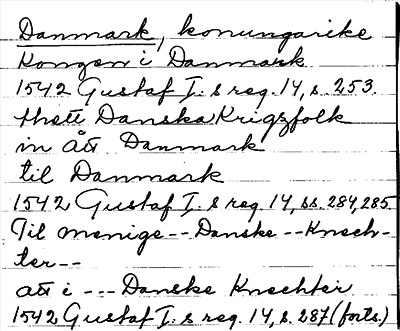 Danmark, konungarike
Kongen i Danmark
1542 Gustaf I. s reg. 14, s. 253.
thett Danska Krigzfolk
in ått Danmark
til Danmark
1542 Gustaf I. s reg. 14, ss. 284, 285
Til menige -- Danske -- Knech-
ter --
att i --- Danske Knechter
1542 Gustaf I. s reg. 14, s. 287 (forts.)